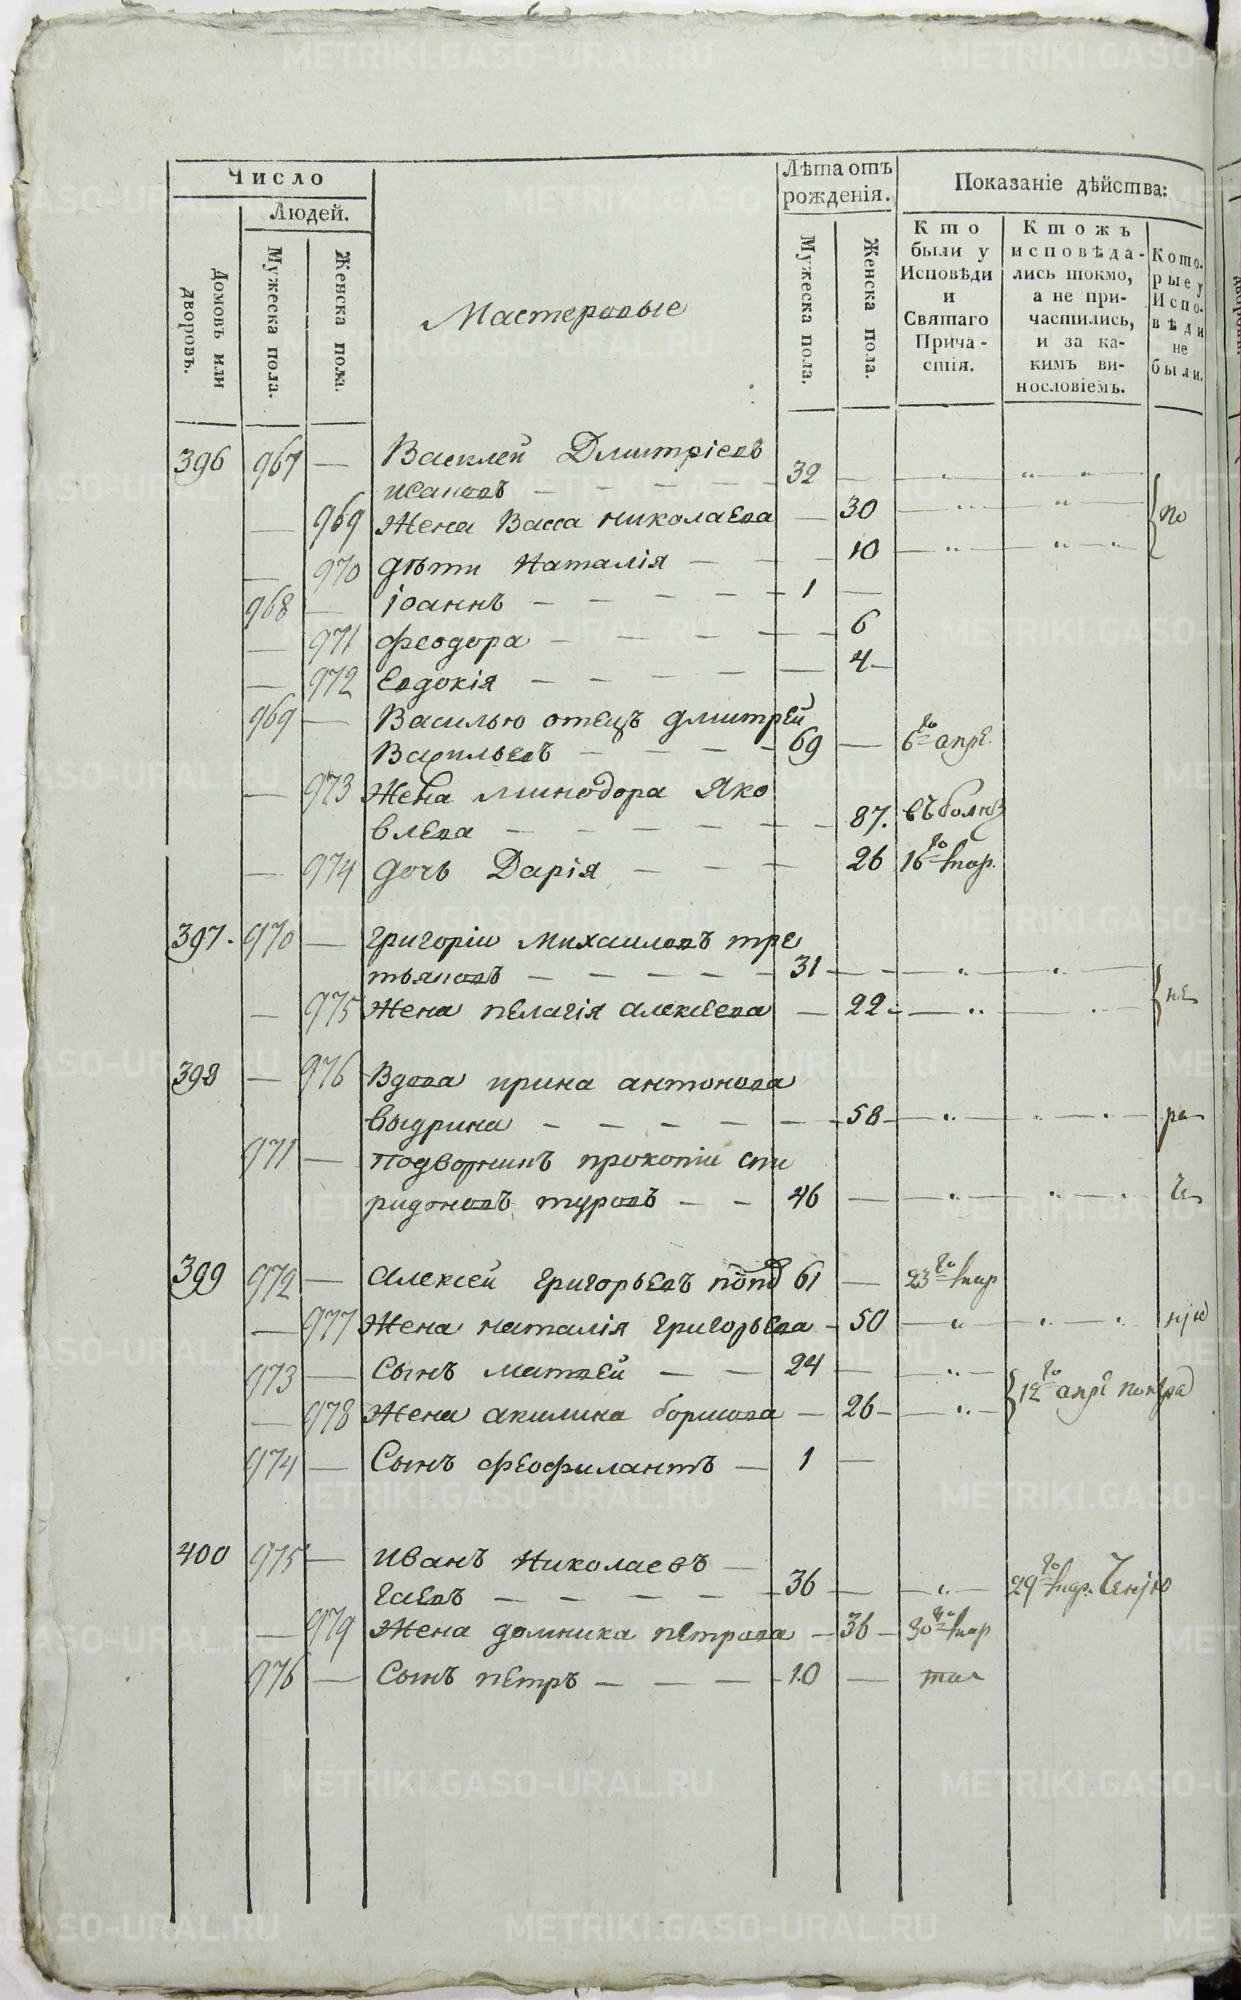 Число
Людей.
Домовъ или дворовъ.
Мужеска пола.
Женска пола.
Мастеровые
Лѣта отъ рожденія.
Мужеска пола.
Женска пола.
Показаніе дѣйства:
Кто были у Исповѣди и Святаго Причастія.
Ктожъ исповѣдались токмо, а не причастились, и за какимъ винословіемъ.
Которые у Исповѣди не были.
396 967 — Василей Дмитріевъ
Исаковъ — 32 —
— 969 Жена Васса николаева — 30 по
— 970 дѣти Наталія — 10
968 — Іоаннъ — 1 —
— 971 феодора — 6
— 972 Евдокія — 4
969 — Василью отецъ дмитрей
Васильевъ — 69 — 6го апрѣ.
— 973 Жена минодора Яко
влева — 87. въ болѣз
— 974 дочь Дарія — 26 16го мар.
397. 970 — григоріи михаиловъ тре
тьяковъ — 31 —
— 975 Жена пелагія алексеева — 22 не
398 — 976 Вдова ирина антонова
выдрина — 58 ра
971 — Подворникъ прокопіи спи
ридоновъ туровъ — 46 —
399 972 — Алексеи григорьевъ попо 61 — 23го мар
— 977 Жена наталія григорьева — 50
973 — Сынъ матвей — 24 —
— 978 Жена акилина борисова — 26 12го апрѣ
974 — Сынъ феофилактъ — 1 —
400 975 — Иванъ Николаевъ —
гаевъ — 36 — 29го мар.
— 979 Жена домника петрова — 36 — 30го мар
976 — Сынъ петръ — 10 —
METRIKI.GASO-URAL.RU